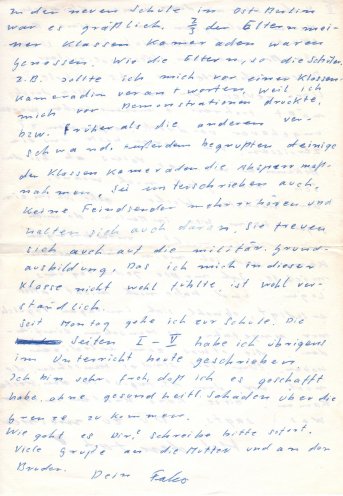 In der neuen Schule im Ost-Berlin
war es gräßlich. 2/3 der Eltern mei-
ner Klassen Kameraden waren
Genossen. Wie die Eltern, so die Schüler.
z.B. sollte ich mich vor einer Klassen-
kameradin verantworten, weil ich
mich vor Demonstrationen drückte,
bzw. früher als die anderen ver-
schwand. Außerdem begrüßten deinige
der Klassen Kameraden die Absperrmaß-
nahmen, sei unterschrieben auch,
keine Feindsender mehr hören und
halten sich auch daran. Sie freuen
sich auch auf die militär. Grund-
ausbildung. Das ich mich in dieser
Klasse nicht wohl fühlte ist wohl ver-
ständlich.
Seit Montag gehe ich zur Schule. Die
Seiten I - V habe ich übrigens
im Unterricht heute geschrieben.
Ich bin sehr froh, daß ich es geschafft
habe, ohne gesundheitl. Schäden über die
Grenze zu kommen.
Wie geht es Dir? Schreibe bitte sofort.
Viele Grüße an die Mutter und an den
Bruder.
Dein Falko